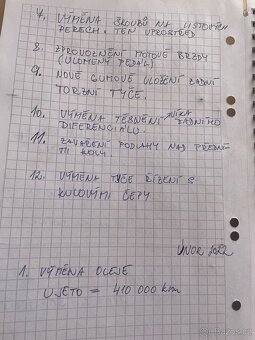 7. VÝMĚNA ŠROUBŮ NA LISTOVÝCH
PERECH. TEN UPROSTŘED
8. ZPROVOZNĚNÍ MOTOVÉ BRZDY
(ULOMENÝ PEDÁL)
9. NOVÉ GUMOVÉ ULOŽENÍ ZADNÍ
TORZNÍ TYČE.
10. VÝMĚNA TĚSNĚNÍ VÍKA ZADNÍHO
DIFERENCIÁLU.
11. ZAVAŘENÍ PODLAHY NAD PŘEDNÍ
MI KOLY.
12. VÝMĚNA TYČE ŘÍZENÍ S
KULOVÝMI ČEPY
ÚNOR 2022
1. VÝMĚNA OLEJE
UJETO = 410 000 km